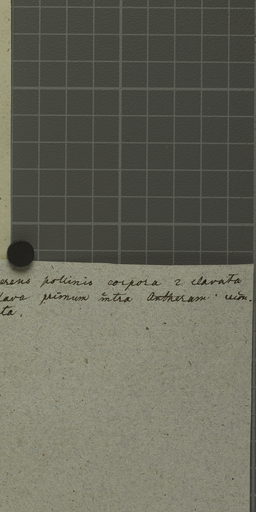 erens pollinis corpora 2 clavata
lava primum intra Antheram
ta.